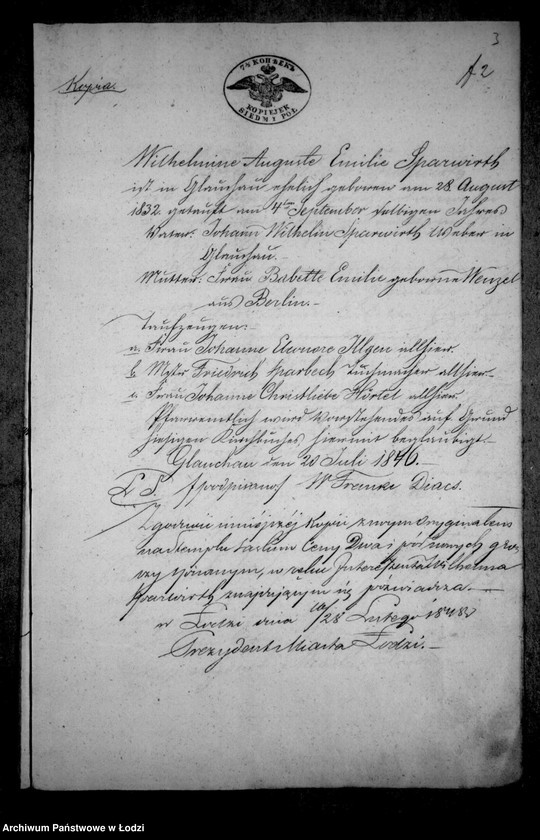 3
Kopia.
7½ КОПѢЕКЪ
KOPIEJEK
SIEDM I PÓŁ
A2
Wilhelmine Auguste Emilie Sparwirth
ist in Glauchau ehelich geboren am 28. August
1832. getauft am 4ten September selbigen Jahres
Vater: Johann Wilhelm Sparwirth Weber in
Glauchau.-
Mutter: Frau Babette Emilie geborne Wenzel
aus Berlin.-
Taufzeugen:-
a. Frau Johanne Eleonore Illgen allhier.
b. Mstr Friedrich Tuchmacher allhier.-
c. Frau Johanne Christliebe Härtel allhier.
Pfarramtlich wird Vorstehendes auf Grund
hiesigen Kirchbuches hiermit beglaubigt.-
Glauchau den 20 Juli 1846.-
L. S. /podpisano/ Diacs.
Zgodność niniejszej Kopii z swym oryginałem
na Stemplu Ceny Dwa i pół
w Wilhelma
Sparwirth znajdującym się poświadcza.-
w Łodzi dnia 16/28 Lutego 1848
Prezydent Miasta Łodzi.-
Archiwum Państwowe w Łodzi